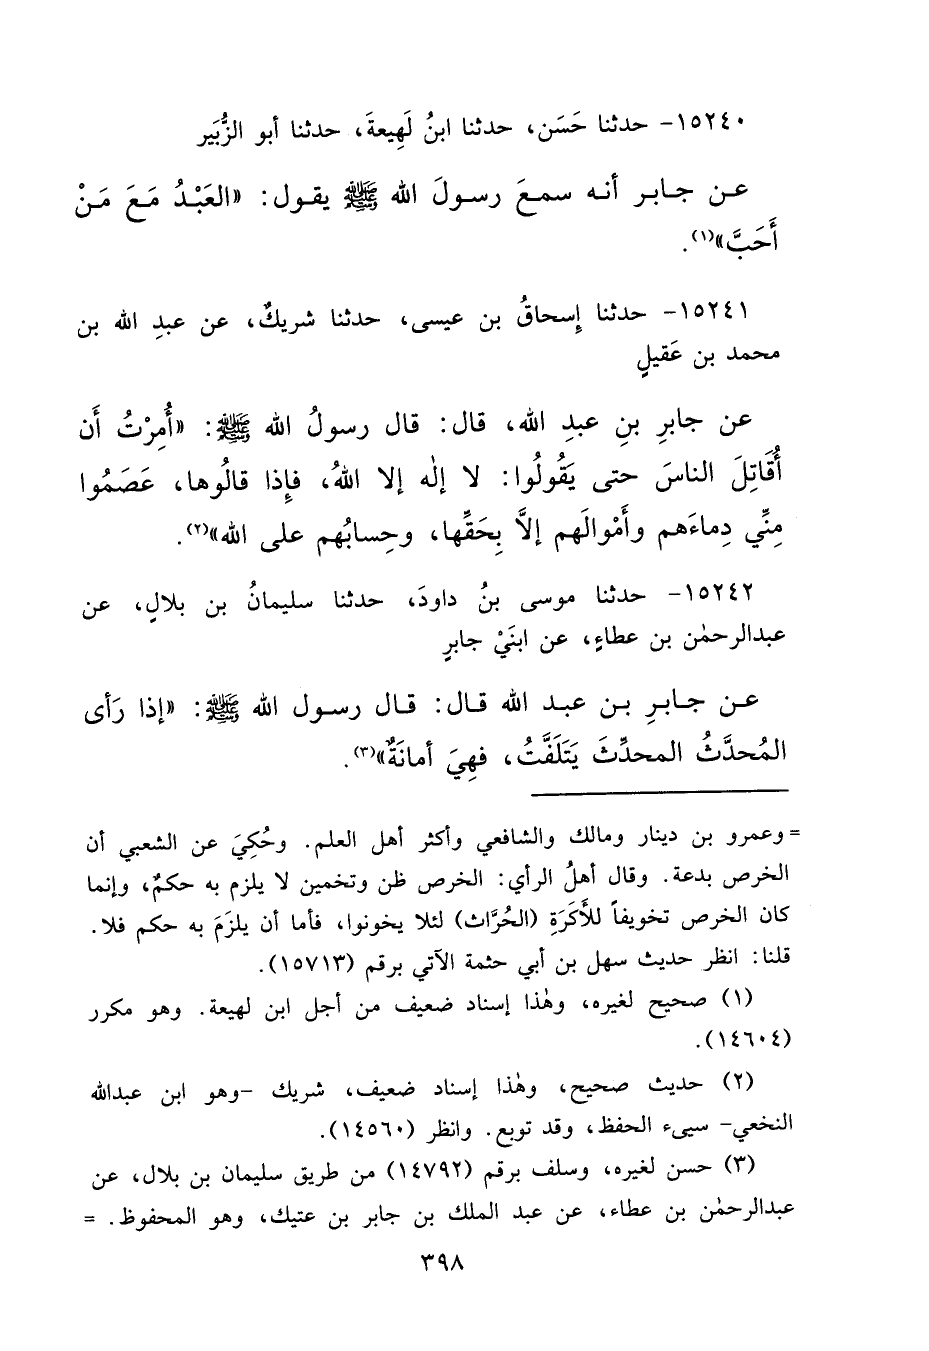 ١٥٢٤٠- حدثنا حَسَن، حدثنا ابنُ لَهِيعةَ، حدثنا أبو الزُّبَير
عن جابر أنه سمعَ رسولَ الله ﷺ يقول: «العَبْدُ مَعَ مَنْ
أَحَبَّ»(١).
١٥٢٤١- حدثنا إِسحاقُ بن عيسى، حدثنا شريكٌ، عن عبدِ الله بن
محمد بن عَقيلٍ
عن جابرِ بنِ عبدِ الله، قال: قال رسولُ الله ﷺ: «أُمِرْتُ أَن
أُقَاتِلَ الناسَ حتى يَقُولُوا: لا إلٰه إلا اللهُ، فإِذا قالُوها، عَصَمُوا
مِنِّي دِماءَهم وأَمْوالَهم إلاَّ بِحَقِّها، وحِسابُهم على الله»(٢).
١٥٢٤٢- حدثنا موسى بنُ داودَ، حدثنا سليمانُ بن بلالٍ، عن
عبدالرحمٰن بن عطاءٍ، عن ابنَيْ جابرٍ
عن جابرِ بن عبد الله قال: قال رسول الله ﷺ: «إذا رَأى
المُحدَّثُ المحدِّثَ يَتَلَفَّتُ، فهِيَ أمانَةٌ»(٣).
= وعمرو بن دينار ومالك والشافعي وأكثر أهل العلم. وحُكِيَ عن الشعبي أن
الخرص بدعة. وقال أهلُ الرأي: الخرص ظن وتخمين لا يلزم به حكمٌ، وإنما
كان الخرص تخويفاً للأَكَرَةِ (الحُرَّاث) لئلا يخونوا، فأما أن يلزَمَ به حكم فلا.
قلنا: انظر حديث سهل بن أبي حثمة الآتي برقم (١٥٧١٣).
(١) صحيح لغيره، وهٰذا إسناد ضعيف من أجل ابن لهيعة. وهو مكرر
(١٤٦٠٤).
(٢) حديث صحيح، وهٰذا إسناد ضعيف، شريك -وهو ابن عبدالله
النخعي- سيىء الحفظ، وقد توبع. وانظر (١٤٥٦٠).
(٣) حسن لغيره، وسلف برقم (١٤٧٩٢) من طريق سليمان بن بلال، عن
عبدالرحمٰن بن عطاء، عن عبد الملك بن جابر بن عتيك، وهو المحفوظ. =
٣٩٨